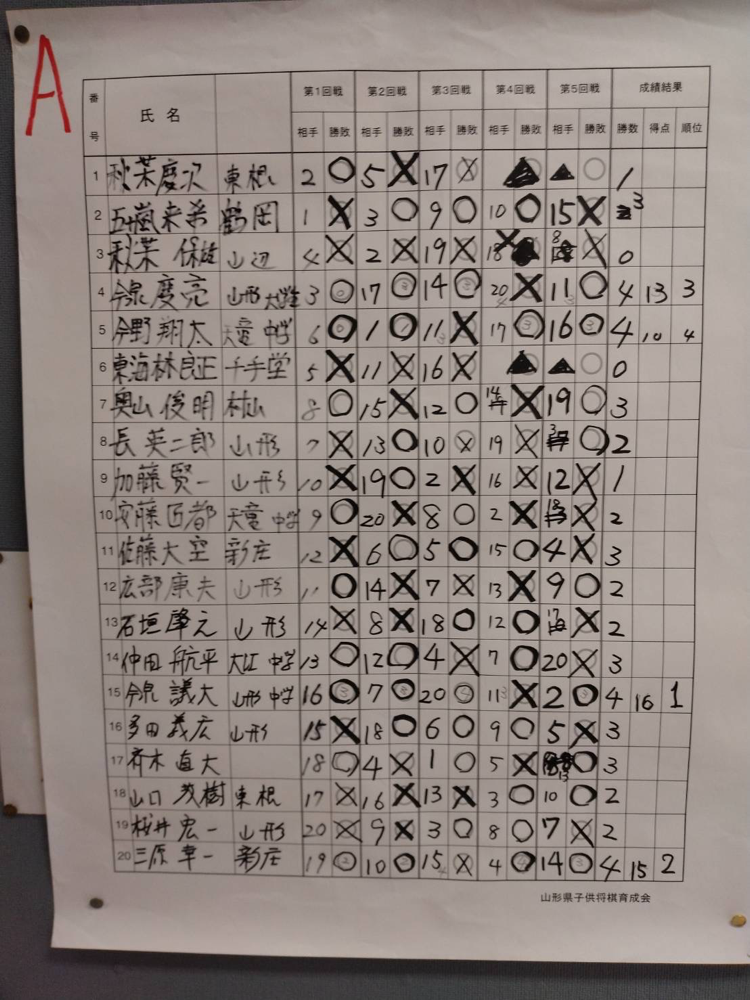 A
番号 氏名 第1回戦 第2回戦 第3回戦 第4回戦 第5回戦 成績結果
相手 勝敗 相手 勝敗 相手 勝敗 相手 勝敗 相手 勝敗 勝数 得点 順位
1 秋葉慶次 東根 2 ○ 5 × 17 × ▲ ▲ ○ 1
2 五十嵐来希 鶴岡 1 × 3 ○ 9 ○ 10 ○ 15 × 3
3 秋葉 保雄 山辺 4 × 2 × 19 × 18 × 8 × 0
4 今泉慶亮 山形 3 ○ 17 ○ 14 ○ 20 × 11 ○ 4 13 3
5 今野翔太 天童 中学 6 ○ 1 ○ 11 × 17 ○ 16 ○ 4 10 4
6 東海林良正 千手堂 5 × 11 × 16 × ▲ ▲ ○ 0
7 奥山俊明 村山 8 ○ 15 × 12 ○ 14 × 19 ○ 3
8 長英二郎 山形 7 × 13 ○ 10 × 19 × 3 ○ 2
9 加藤賢一 山形 10 × 19 ○ 2 × 16 × 12 × 1
10 安藤匠都 天童 中学 9 ○ 20 × 8 ○ 2 × 18 × 2
11 佐藤大空 新庄 12 × 6 ○ 5 ○ 15 ○ 4 × 3
12 広部康夫 山形 11 ○ 14 × 7 × 13 × 9 ○ 2
13 石垣肇元 山形 14 × 8 × 18 ○ 12 ○ × 2
14 仲田航平 大江 中学 13 ○ 12 ○ 4 × 7 ○ 20 × 3
15 今泉議大 山形 中学 16 ○ 7 ○ 20 ○ 11 × 2 ○ 4 16 1
16 多田義広 山形 15 × 18 ○ 6 ○ 9 ○ 5 × 3
17 斉木直大 18 ○ 4 × 1 ○ 5 × 13 ○ 3
18 山口茂樹 東根 17 × 16 × 13 × 3 ○ 10 ○ 2
19 桜井宏一 山形 20 × 9 × 3 ○ 8 ○ 7 × 2
20 三原幸一 新庄 19 ○ 10 ○ 15 × 4 ○ 14 ○ 4 15 2
山形県子供将棋育成会